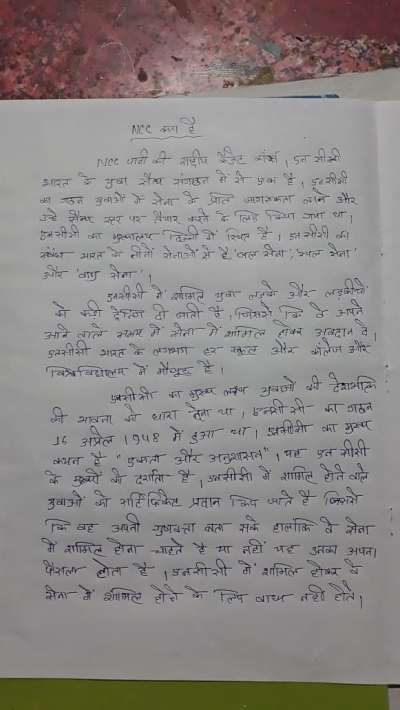 NCC क्या है
NCC यानी की राष्ट्रीय कैडेट कॉर्प्स, एन सीसी
भारत के युवा सैन्य संगठन में से एक है, एनसीसी
का गठन युवाओं में सेना के प्रति जागरूकता लाने और
उन्हे सैन्य स्तर पर तैयार करने के लिए किया गया था,
एनसीसी का मुख्यालय दिल्ली में स्थित है, एनसीसी का
संबंध भारत के तीनों सेनाओं में है 'जल सेना', 'थल सेना'
और 'वायु सेना'।
एनसीसी में शामिल युवा लड़के और लड़कीयों
को कड़ी ट्रेनिंग दी जाती है, जिससे कि वे अपने
आने वाले समय में सेना में शामिल होकर अवदान दे,
एनसीसी भारत के लगभग हर स्कूल और कॉलेज और
विश्वविद्यालय में मौजूद है।
एनसीसी का मुख्य लक्ष्य युवाओं की देशभक्ति
की भावना को धारा देना था, एनसीसी का गठन
16 अप्रैल 1948 में हुआ था, एनसीसी का मुख्य
कथन है "एकता और अनुशासन", यह एन सीसी
के मूल्यों को दर्शाता है, एनसीसी में शामिल होने वाले
युवाओं को सर्टिफिकेट प्रदान किए जाते है जिससे
कि वह अपनी गुणवत्ता बता सके हालांकि वे सेना
में शामिल होना चाहते है या नहीं यह उनका अपना
फैसला होता है, एनसीसी में शामिल होकर वे
सेना में शामिल होने के लिए बाध्य नही होते,